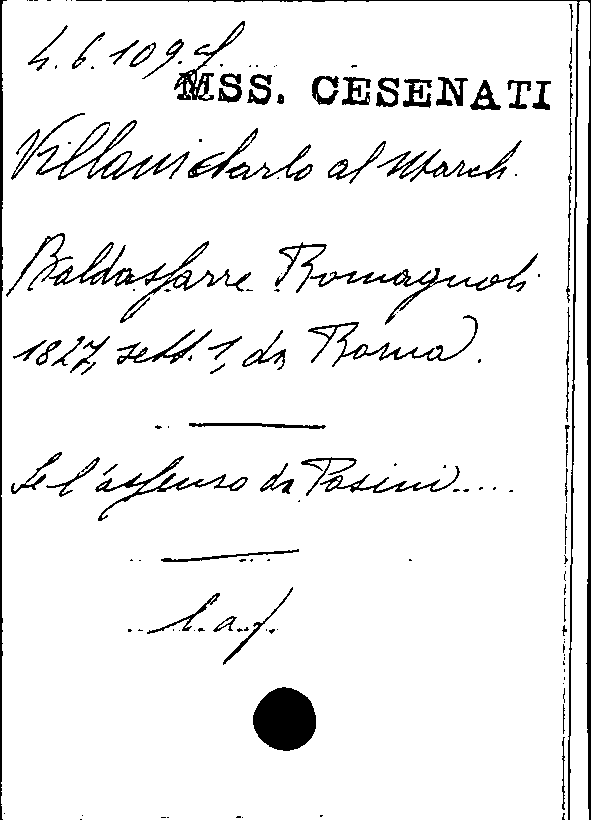 4.6.109.
MSS. CESENATI
Villani Carlo al March.
Baldassarre Romagnoli
1827, sett. 1, da Roma.
Se l'assenso da Pasini.....
l.a.f.